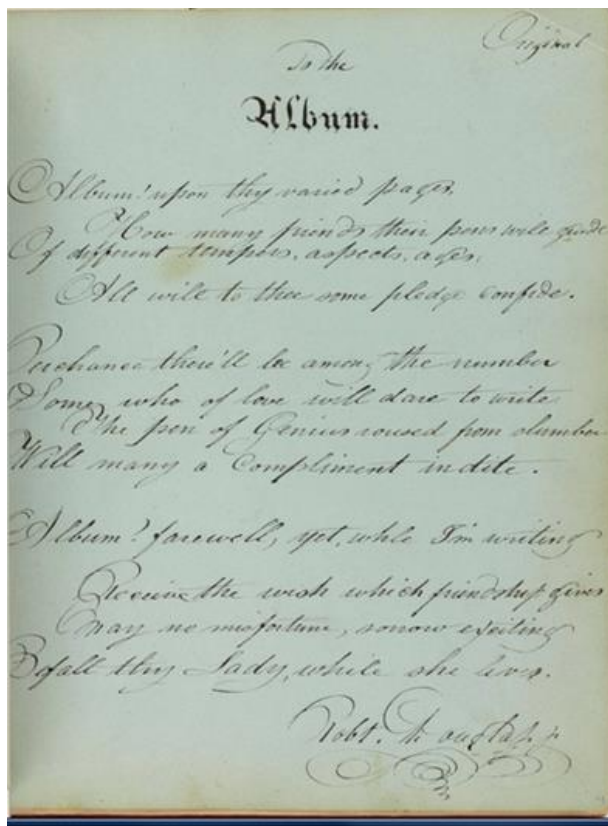 Original
To the
Album.
Album! upon thy varied pages,
How many friends their pens will guide
Of different tempers, aspects, ages,
All will to thee some pledge confide.
Perchance there'll be among the number
Some, who of love will dare to write
The pen of Genius roused from slumber
Will many a Compliment indite.
Album! farewell, yet, while I'm writing
Receive the wish which friendship gives
May no misfortune, sorrow exciting
Befall thy Lady, while she lives.
Robt.